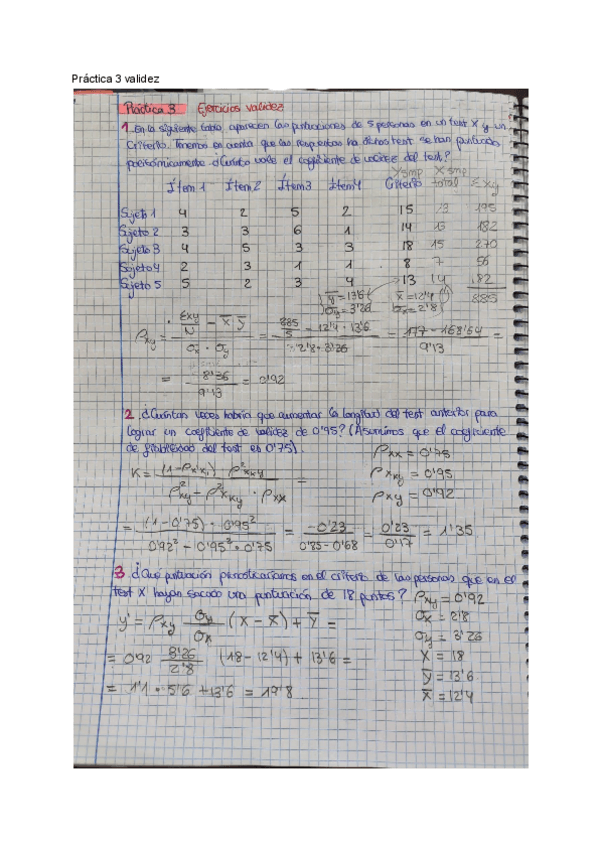 Práctica 3 validez
Práctica 3 Ejercicios validez
1. En la siguiente tabla aparecen las puntuaciones de 5 personas en un test X y un
criterio. Tenemos en cuenta que las respuestas ha dichos test se han puntuado
policotómicamente ¿Cuánto vale el coeficiente de validez del test?
Ítem 1 Ítem 2 Ítem 3 Ítem 4 Criterio total Σxy
Sujeto 1 4 2 5 2 15 13 195
Sujeto 2 3 3 6 1 14 13 182
Sujeto 3 4 5 3 3 18 15 270
Sujeto 4 2 3 1 1 8 7 56
Sujeto 5 5 2 3 4 13 14 182
ȳ = 13'6 x̄ = 12'4 885
σy = 3'26 σx = 2'8
ρxy = (Σxy/N − x̄·ȳ) / (σx · σy) = (885/5 − 12'4 · 13'6) / (2'8 · 3'26) = (177 − 168'64) / 9'13 =
= 8'36 / 9'13 = 0'92
2. ¿Cuántas veces habría que aumentar la longitud del test anterior para
lograr un coeficiente de validez de 0'95? (Asumimos que el coeficiente
de fiabilidad del test es 0'75).
ρxx = 0'75
K = (1 − ρxx) · ρ²xky / (ρ²xy − ρ²xky · ρxx) =
ρxxy = 0'95
ρxy = 0'92
= (1 − 0'75) · 0'95² / (0'92² − 0'95² · 0'75) = −0'23 / (0'85 − 0'68) = 0'23 / 0'17 = 1'35
3. ¿Qué puntuación pronosticaríamos en el criterio de las personas que en el
test X hayan sacado una puntuación de 18 puntos?
ρxy = 0'92
σx = 2'8
y' = ρxy σy/σx (X − x̄) + ȳ =
σy = 3'26
X = 18
= 0'92 3'26/2'8 (18 − 12'4) + 13'6 =
ȳ = 13'6
= 1'1 · 5'6 + 13'6 = 19'8
x̄ = 12'4